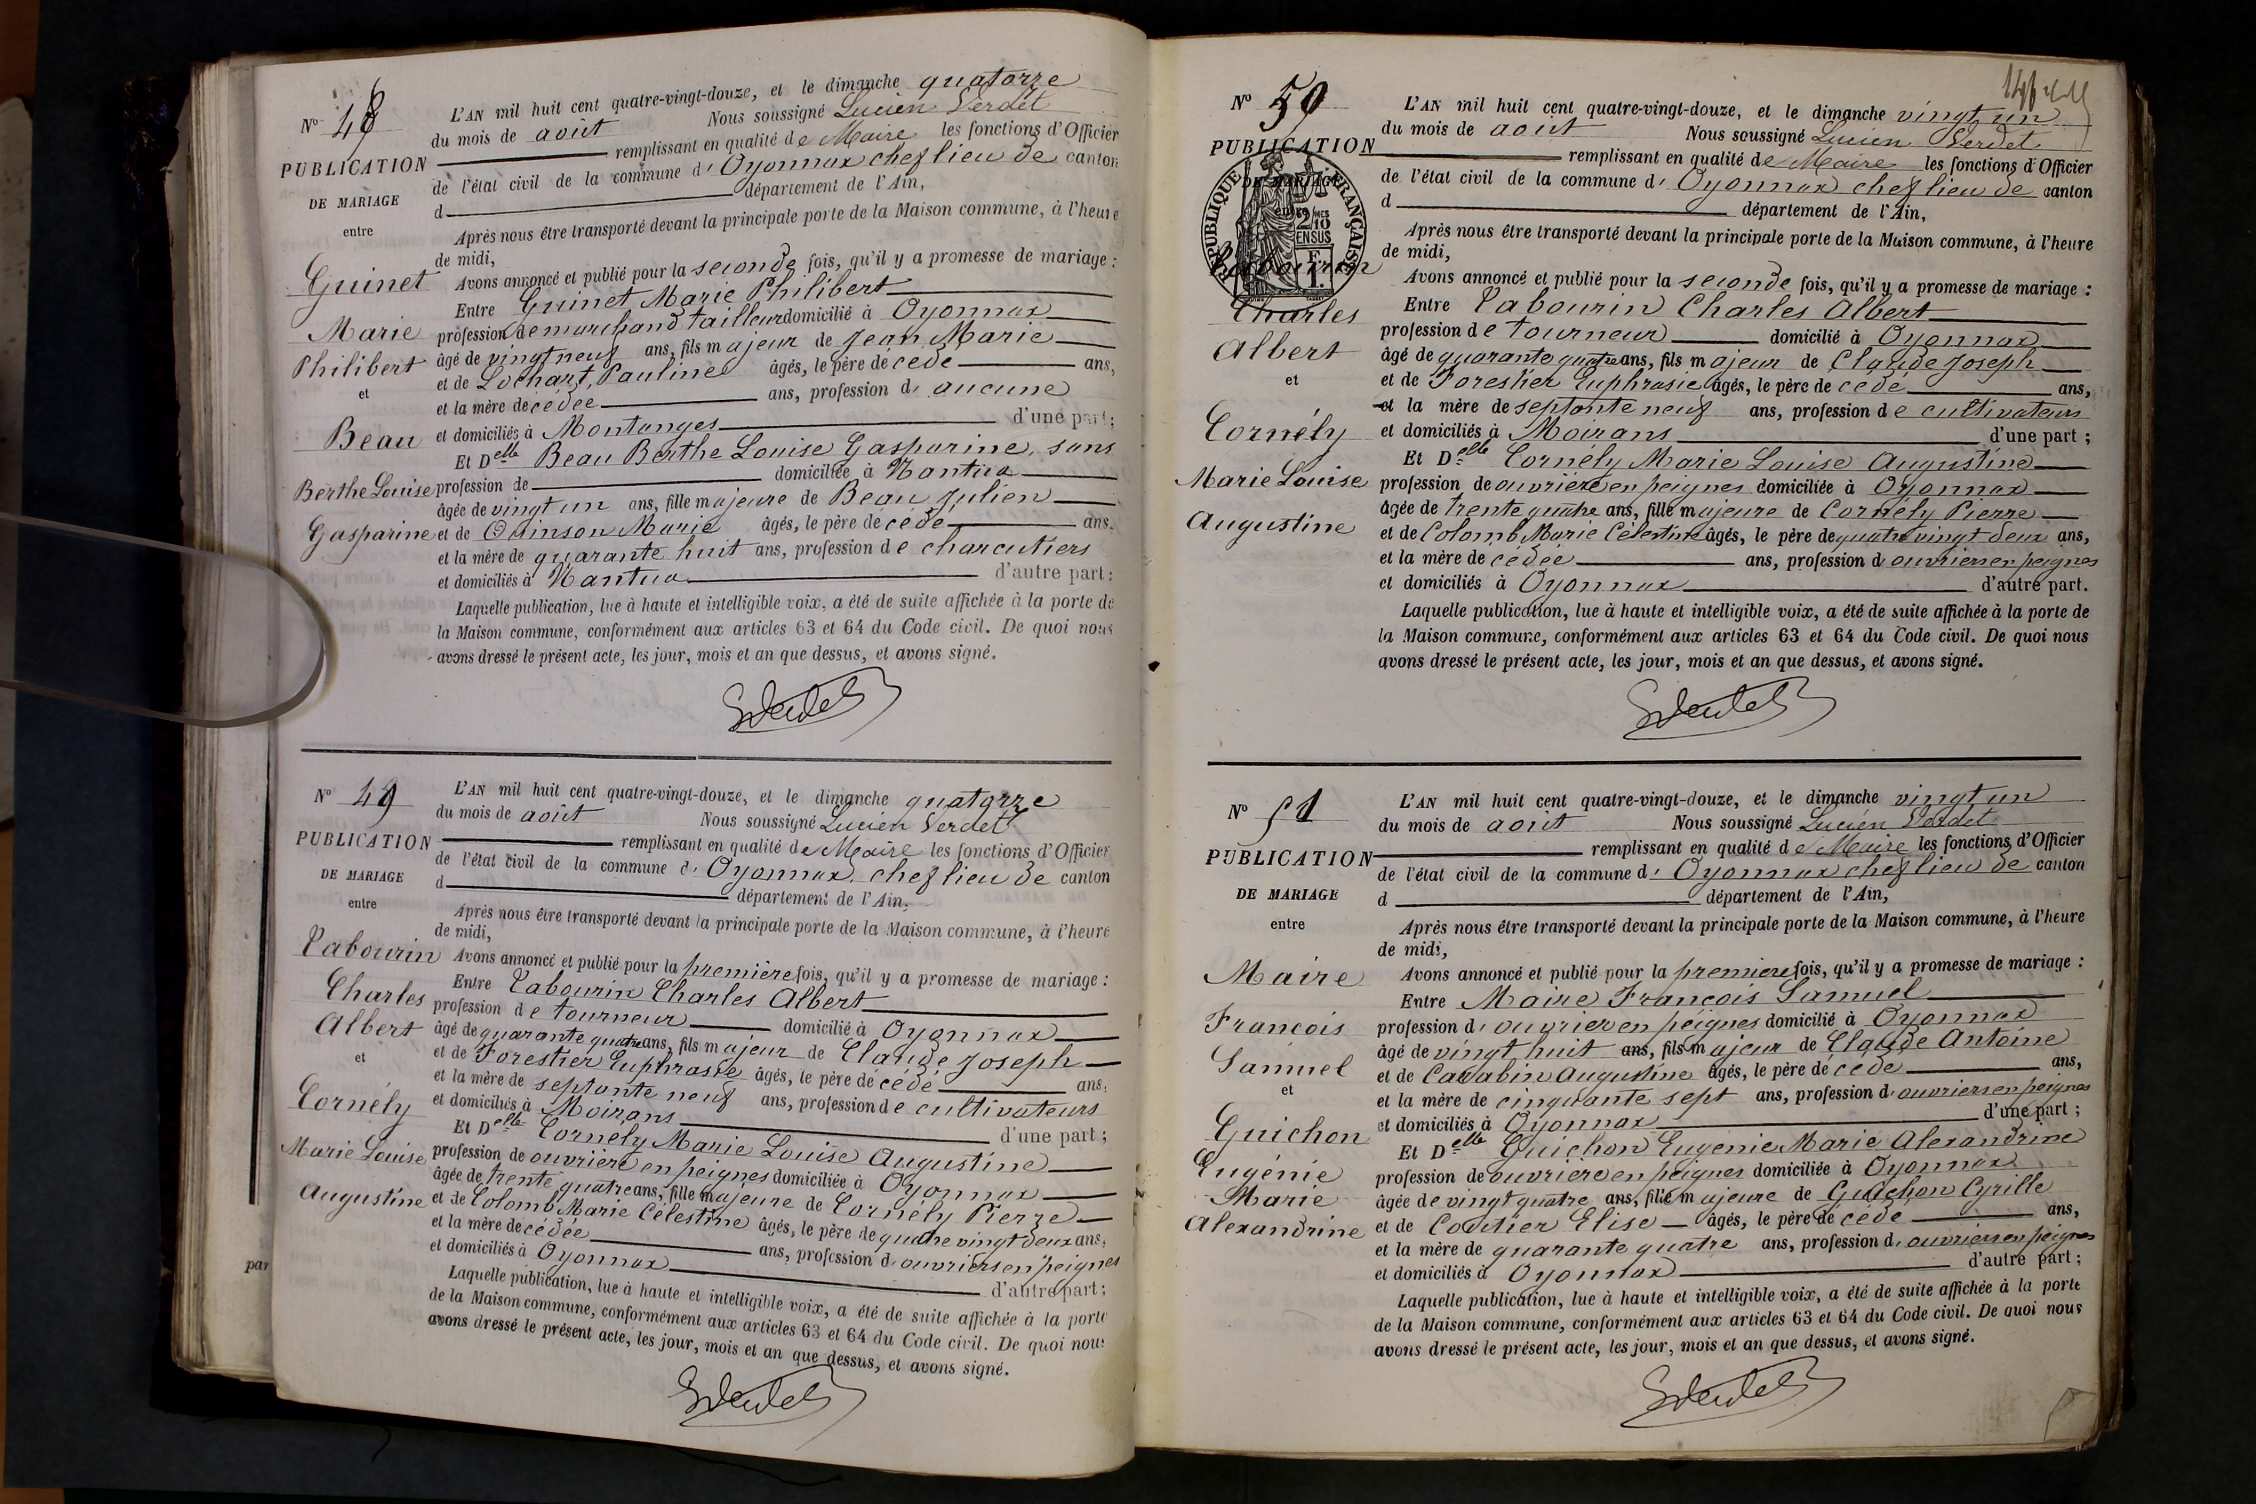 Nº 48
PUBLICATION
DE MARIAGE
entre
Guinet
Marie
Philibert
et
Beau
Berthe Louise
Gasparine
L'AN mil huit cent quatre-vingt-douze, et le dimanche quatorze
du mois de août Nous soussigné Lucien Verdet
remplissant en qualité de Maire les fonctions d'Officier
de l'état civil de la commune d' Oyonnax chef lieu de canton
d département de l'Ain,
Après nous être transporté devant la principale porte de la Maison commune, à l'heure
de midi,
Avons annoncé et publié pour la seconde fois, qu'il y a promesse de mariage :
Entre Guinet Marie Philibert
profession de marchand tailleur domicilié à Oyonnax
âgé de vingt neuf ans, fils majeur de Jean Marie
et de Lochart Pauline âgés, le père décédé ans,
et la mère décédée ans, profession d' aucune
et domiciliés à Montanges d'une part;
Et Delle Beau Berthe Louise Gasparine, sans
profession de domiciliée à Nantua
âgée de vingt un ans, fille majeure de Beau Julien
et de Quinson Marie âgés, le père décédé ans.
et la mère de quarante huit ans, profession de charcutiers
et domiciliés à Nantua d'autre part:
Laquelle publication, lue à haute et intelligible voix, a été de suite affichée à la porte de
la Maison commune, conformément aux articles 63 et 64 du Code civil. De quoi nous
avons dressé le présent acte, les jour, mois et an que dessus, et avons signé.
Nº 49
PUBLICATION
DE MARIAGE
entre
Tabourin
Charles
Albert
et
Cornély
Marie Louise
Augustine
L'AN mil huit cent quatre-vingt-douze, et le dimanche quatorze
du mois de août Nous soussigné Lucien Verdet
remplissant en qualité de Maire les fonctions d'Officier
de l'état civil de la commune d' Oyonnax chef lieu de canton
d département de l'Ain,
Après nous être transporté devant la principale porte de la Maison commune, à l'heure
de midi,
Avons annoncé et publié pour la première fois, qu'il y a promesse de mariage :
Entre Tabourin Charles Albert
profession de tourneur domicilié à Oyonnax
âgé de quarante quatre ans, fils majeur de Claude Joseph
et de Forestier Euphrasie âgés, le père décédé ans,
et la mère de septante neuf ans, profession de cultivateurs
et domiciliés à Moirans d'une part;
Et Delle Cornély Marie Louise Augustine
profession de ouvrière en peignes domiciliée à Oyonnax
âgée de trente quatre ans, fille majeure de Cornély Pierre
et de Colomb Marie Célestine âgés, le père de quatre vingt deux ans,
et la mère décédée ans, profession d' ouvriers en peignes
et domiciliés à Oyonnax d'autre part;
Laquelle publication, lue à haute et intelligible voix, a été de suite affichée à la porte
de la Maison commune, conformément aux articles 63 et 64 du Code civil. De quoi nous
avons dressé le présent acte, les jour, mois et an que dessus, et avons signé.
par
Nº 50
PUBLICATION
DE MARIAGE
entre
RÉPUBLIQUE FRANÇAISE
2/10
EN SUS
Tabourin
Charles
Albert
et
Cornély
Marie Louise
Augustine
L'AN mil huit cent quatre-vingt-douze, et le dimanche vingt un
du mois de août Nous soussigné Lucien Verdet
remplissant en qualité de Maire les fonctions d'Officier
de l'état civil de la commune d' Oyonnax chef lieu de canton
d département de l'Ain,
Après nous être transporté devant la principale porte de la Maison commune, à l'heure
de midi,
Avons annoncé et publié pour la seconde fois, qu'il y a promesse de mariage :
Entre Tabourin Charles Albert
profession de tourneur domicilié à Oyonnax
âgé de quarante quatre ans, fils majeur de Claude Joseph
et de Forestier Euphrasie âgés, le père décédé ans,
et la mère de septante neuf ans, profession de cultivateurs
et domiciliés à Moirans d'une part ;
Et Delle Cornély Marie Louise Augustine
profession de ouvrière en peignes domiciliée à Oyonnax
âgée de trente quatre ans, fille majeure de Cornély Pierre
et de Colomb Marie Célestine âgés, le père de quatre vingt deux ans,
et la mère décédée ans, profession d' ouvriers en peignes
et domiciliés à Oyonnax d'autre part.
Laquelle publication, lue à haute et intelligible voix, a été de suite affichée à la porte de
la Maison commune, conformément aux articles 63 et 64 du Code civil. De quoi nous
avons dressé le présent acte, les jour, mois et an que dessus, et avons signé.
Nº 51
PUBLICATION
DE MARIAGE
entre
Maire
François
Samuel
et
Guichon
Eugénie
Marie
Alexandrine
L'AN mil huit cent quatre-vingt-douze, et le dimanche vingt un
du mois de août Nous soussigné Lucien Verdet
remplissant en qualité de Maire les fonctions d'Officier
de l'état civil de la commune d' Oyonnax chef lieu de canton
d département de l'Ain,
Après nous être transporté devant la principale porte de la Maison commune, à l'heure
de midi,
Avons annoncé et publié pour la première fois, qu'il y a promesse de mariage :
Entre Maire François Samuel
profession d' ouvrier en peignes domicilié à Oyonnax
âgé de vingt huit ans, fils majeur de Claude Antoine
et de Cavabin Augustine âgés, le père décédé ans,
et la mère de cinquante sept ans, profession d' ouvriers en peignes
et domiciliés à Oyonnax d'une part ;
Et Delle Guichon Eugénie Marie Alexandrine
profession de ouvrière en peignes domiciliée à Oyonnax
âgée de vingt quatre ans, fille majeure de Guichon Cyrille
et de Coutier Elise âgés, le père décédé ans,
et la mère de quarante quatre ans, profession d' ouvriers en peignes
et domiciliés à Oyonnax d'autre part ;
Laquelle publication, lue à haute et intelligible voix, a été de suite affichée à la porte
de la Maison commune, conformément aux articles 63 et 64 du Code civil. De quoi nous
avons dressé le présent acte, les jour, mois et an que dessus, et avons signé.